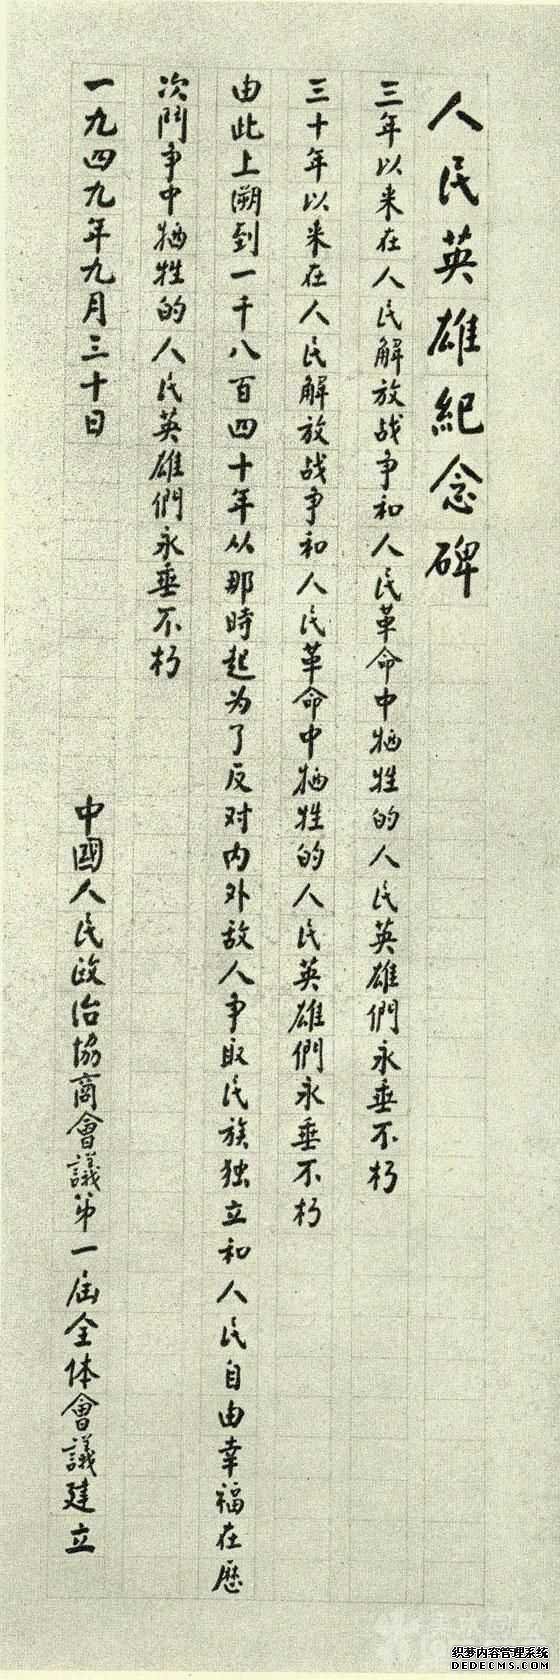 人民英雄紀念碑
三年以来在人民解放战争和人民革命中牺牲的人民英雄們永垂不朽
三十年以来在人民解放战争和人民革命中牺牲的人民英雄們永垂不朽
由此上溯到一千八百四十年从那時起为了反对内外敌人争取民族独立和人民自由幸福在歷
次鬥争中牺牲的人民英雄們永垂不朽
一九四九年九月三十日
中國人民政治協商會議第一屆全体會議建立
织梦内容管理系统
DEDECMS.COM